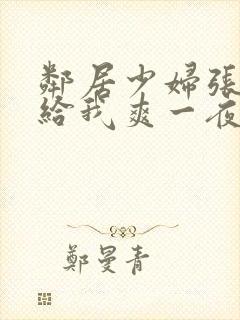 鄰居少婦張
給我爽一夜
鄭曼青